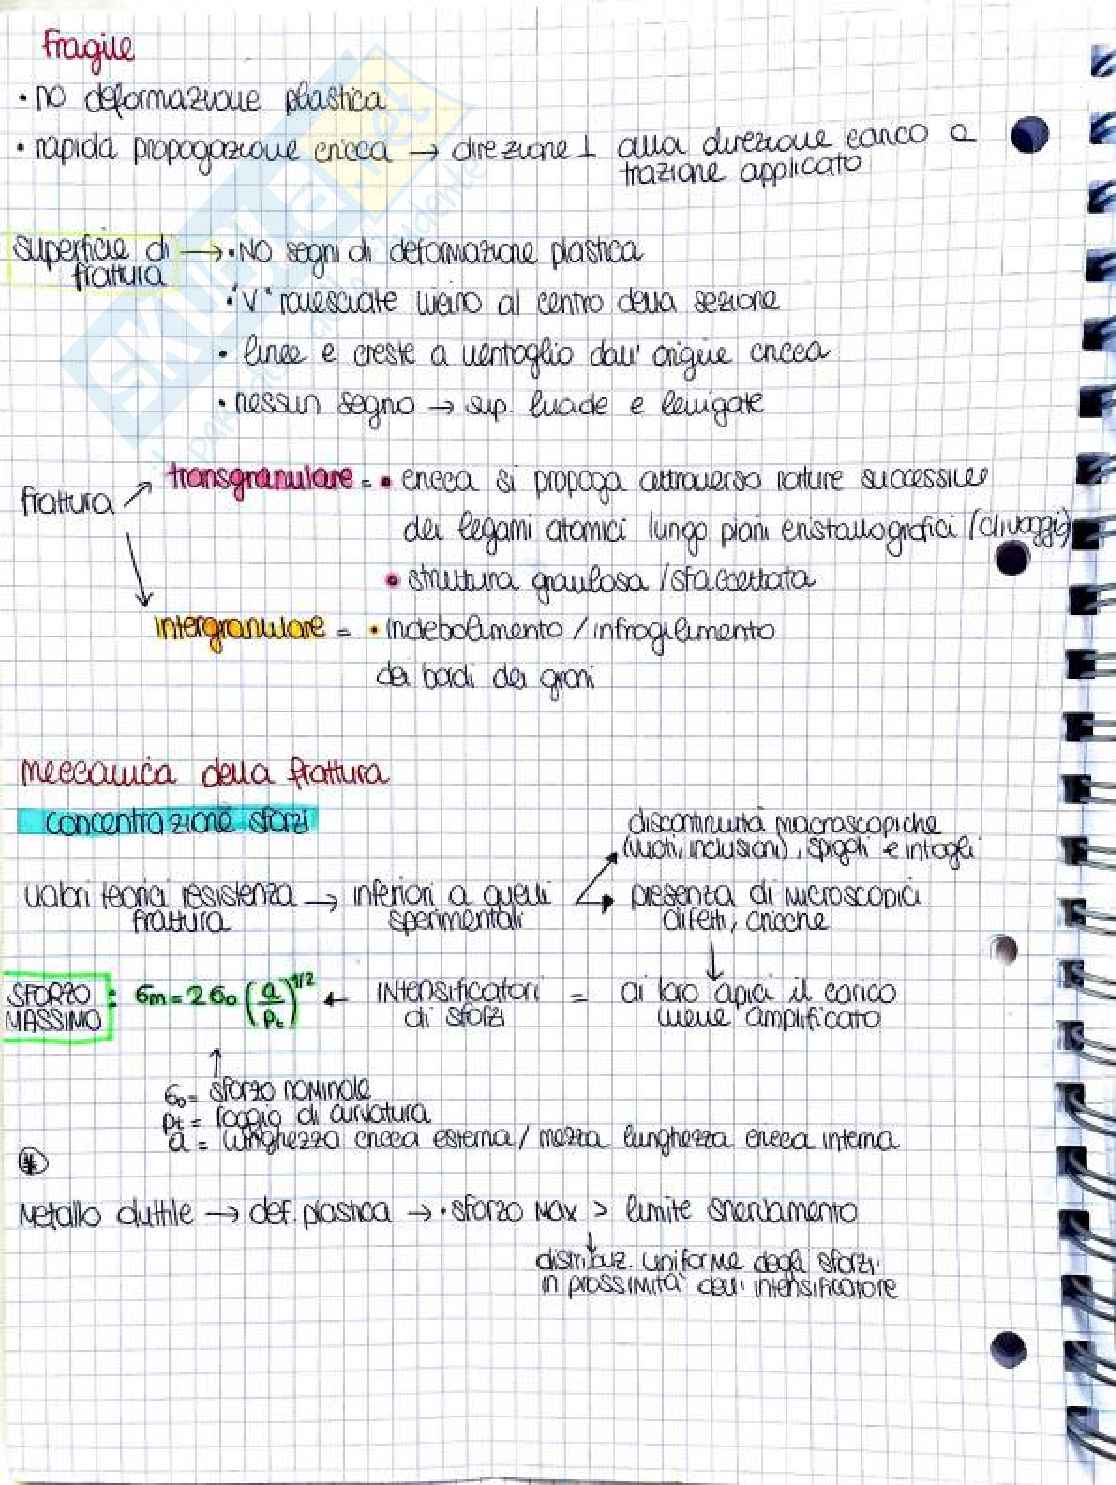 Fragile
• no deformazione plastica
• rapida propagazione cricca → direzione ⊥ alla direzione carico a
trazione applicato
superficie di → • NO segni di deformazione plastica
frattura
• "V" rovesciate vicino al centro della sezione
• linee e creste a ventaglio dall' origine cricca
• nessun segno → sup. lucide e levigate
transgranulare = • cricca si propaga attraverso rotture successive
frattura
dei legami atomici lungo piani cristallografici (clivaggi)
• struttura granulosa / sfaccettata
intergranulare = • indebolimento / infragilimento
dei bordi dei grani
meccanica della frattura
concentrazione sforzi
discontinuità macroscopiche
(vuoti, inclusioni), spigoli e intagli
valori teorici resistenza → inferiori a quelli → presenza di microscopici
frattura sperimentali difetti, cricche
SFORZO MASSIMO : σm = 2σ0 (a/ρt)^1/2 ← intensificatori = ai loro apici il carico
di sforzi viene amplificato
σ0 = sforzo nominale
ρt = raggio di curvatura
a = lunghezza cricca esterna / mezza lunghezza cricca interna
*
Metallo duttile → def. plastica → • sforzo max > limite snervamento
distribuz. uniforme degli sforzi
in prossimità dell' intensificatore
SKUOLA.net